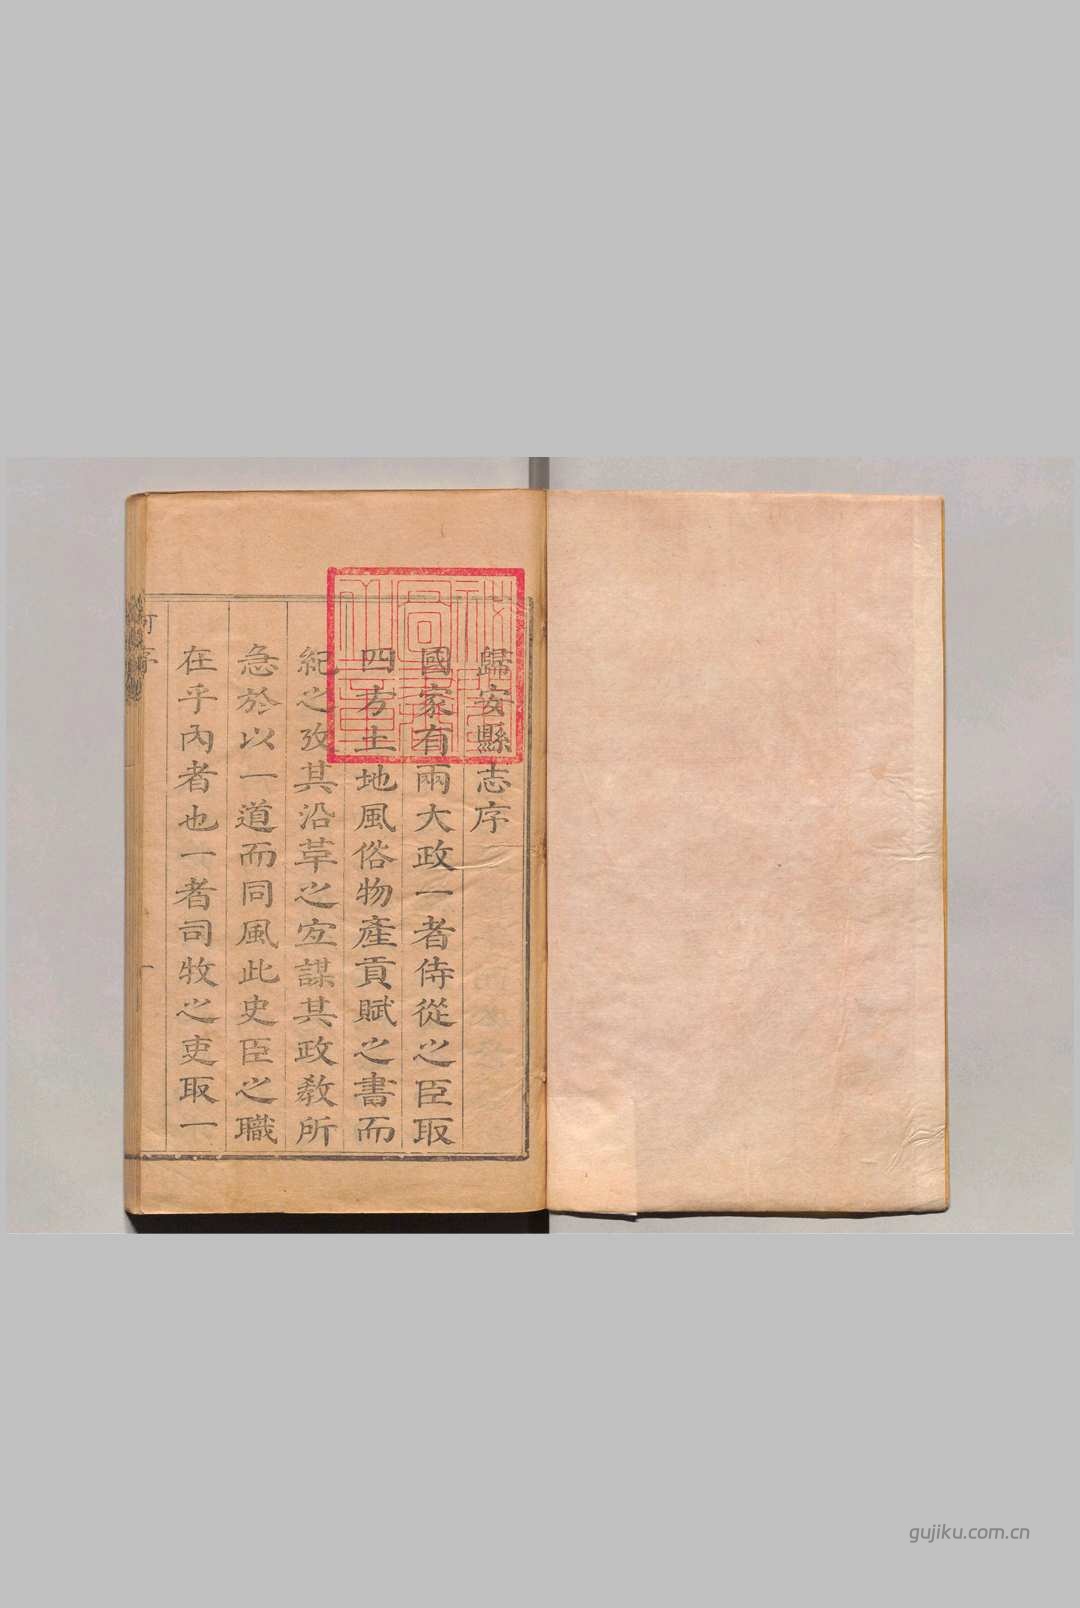 歸安縣志序
國家有兩大政一者侍從之臣取
四方土地風俗物產貢賦之書而
紀之攷其沿革之宐謀其政敎所
急於以一道而同風此史臣之職
在乎內者也一者司牧之吏取一
gujiku.com.cn